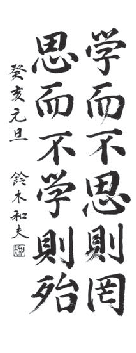 学而不思則罔
思而不学則殆
癸亥元旦　鈴木和夫